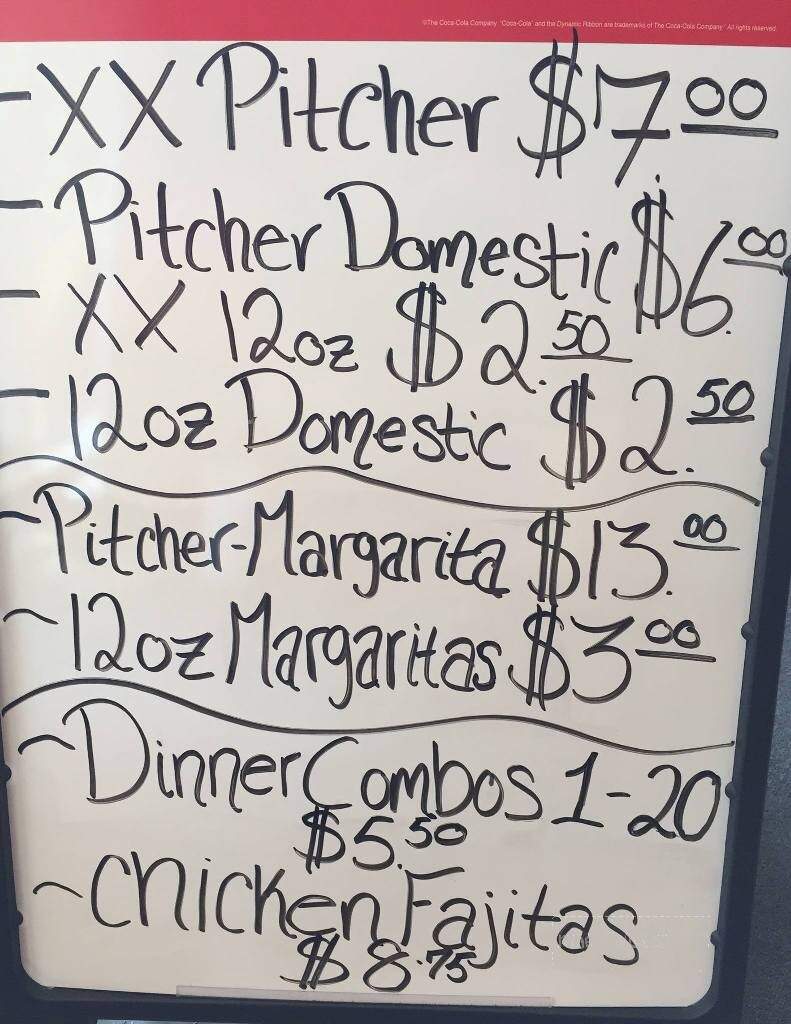 ©The Coca-Cola Company. "Coca-Cola" and the Dynamic Ribbon are trademarks of The Coca-Cola Company. All rights reserved.
- XX Pitcher $7.00
- Pitcher Domestic $6.00
- XX 12oz $2.50
- 12oz Domestic $2.50
~ Pitcher-Margarita $13.00
~ 12oz Margaritas $3.00
~ Dinner Combos 1-20
$5.50
~ Chicken Fajitas
$8.75